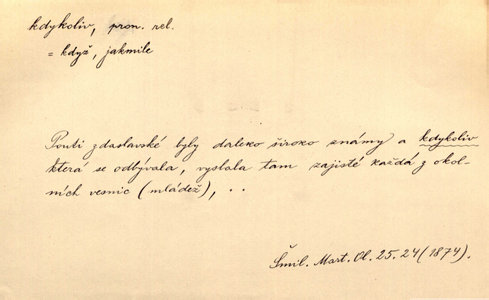 kdykoliv, pron. rel.
= když, jakmile
Pouti zdaslavské byly daleko široko známy a kdykoliv
která se odbývala, vyslala tam zajisté každá z okol-
ních vesnic (mládež), ..
Šmil. Mart. Ol. 25. 24 (1874).